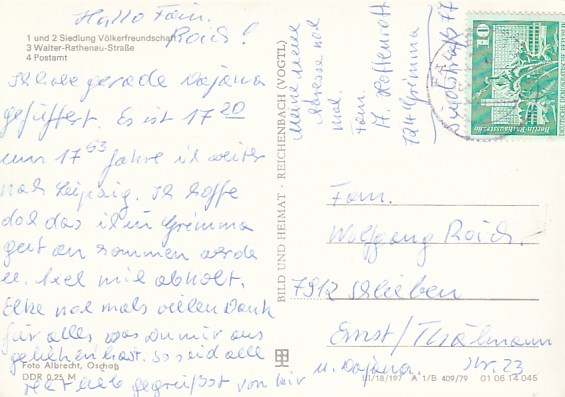 Hallo Fam.
Roick!
1 und 2 Siedlung Völkerfreundschaft
3 Walter-Rathenau-Straße
4 Postamt
Ich habe gerade Dajana
gefüttert. Es ist 17 20
um 17 53 fahre ich weiter
nach Leipzig. Ich hoffe
doch das ich in Grimma
gut an kommen werde
u. mich abholt.
Elke noch mals vielen Dank
für alles was Du mir aus
geliehen hast. So seid alle
herzlich gegrüßt von mir
u. Dajana.
Foto Albrecht, Oschatz
DDR 0,25 M
BILD UND HEIMAT · REICHENBACH (VOGTL)
Meine neue
Adresse noch
mal.
Fam.
H.
724 Grimma
77
10
DEUTSCHE DEMOKRATISCHE REPUBLIK
Fam.
Wolfgang Roick.
7912 Schlieben
Ernst/Thälmann
Str. 23
III/18/197 A 1/B 409/79 01 06 14 045